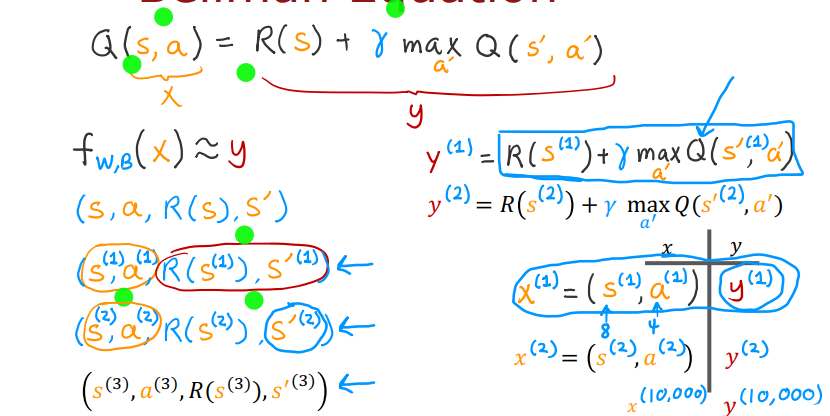 Bellman Equation
Q(s, a) = R(s) + γ max_a' Q(s', a')
x
y
f_W,B(x) ≈ y
(s, a, R(s), s')
(s^(1), a^(1), R(s^(1)), s'^(1)) ←
(s^(2), a^(2), R(s^(2)), s'^(2)) ←
(s^(3), a^(3), R(s^(3)), s'^(3)) ←
y^(1) = R(s^(1)) + γ max_a' Q(s'^(1), a')
y^(2) = R(s^(2)) + γ max_a' Q(s'^(2), a')
x y
x^(1) = (s^(1), a^(1)) y^(1)
↑ ↑
8 4
x^(2) = (s^(2), a^(2)) y^(2)
x^(10,000) y^(10,000)